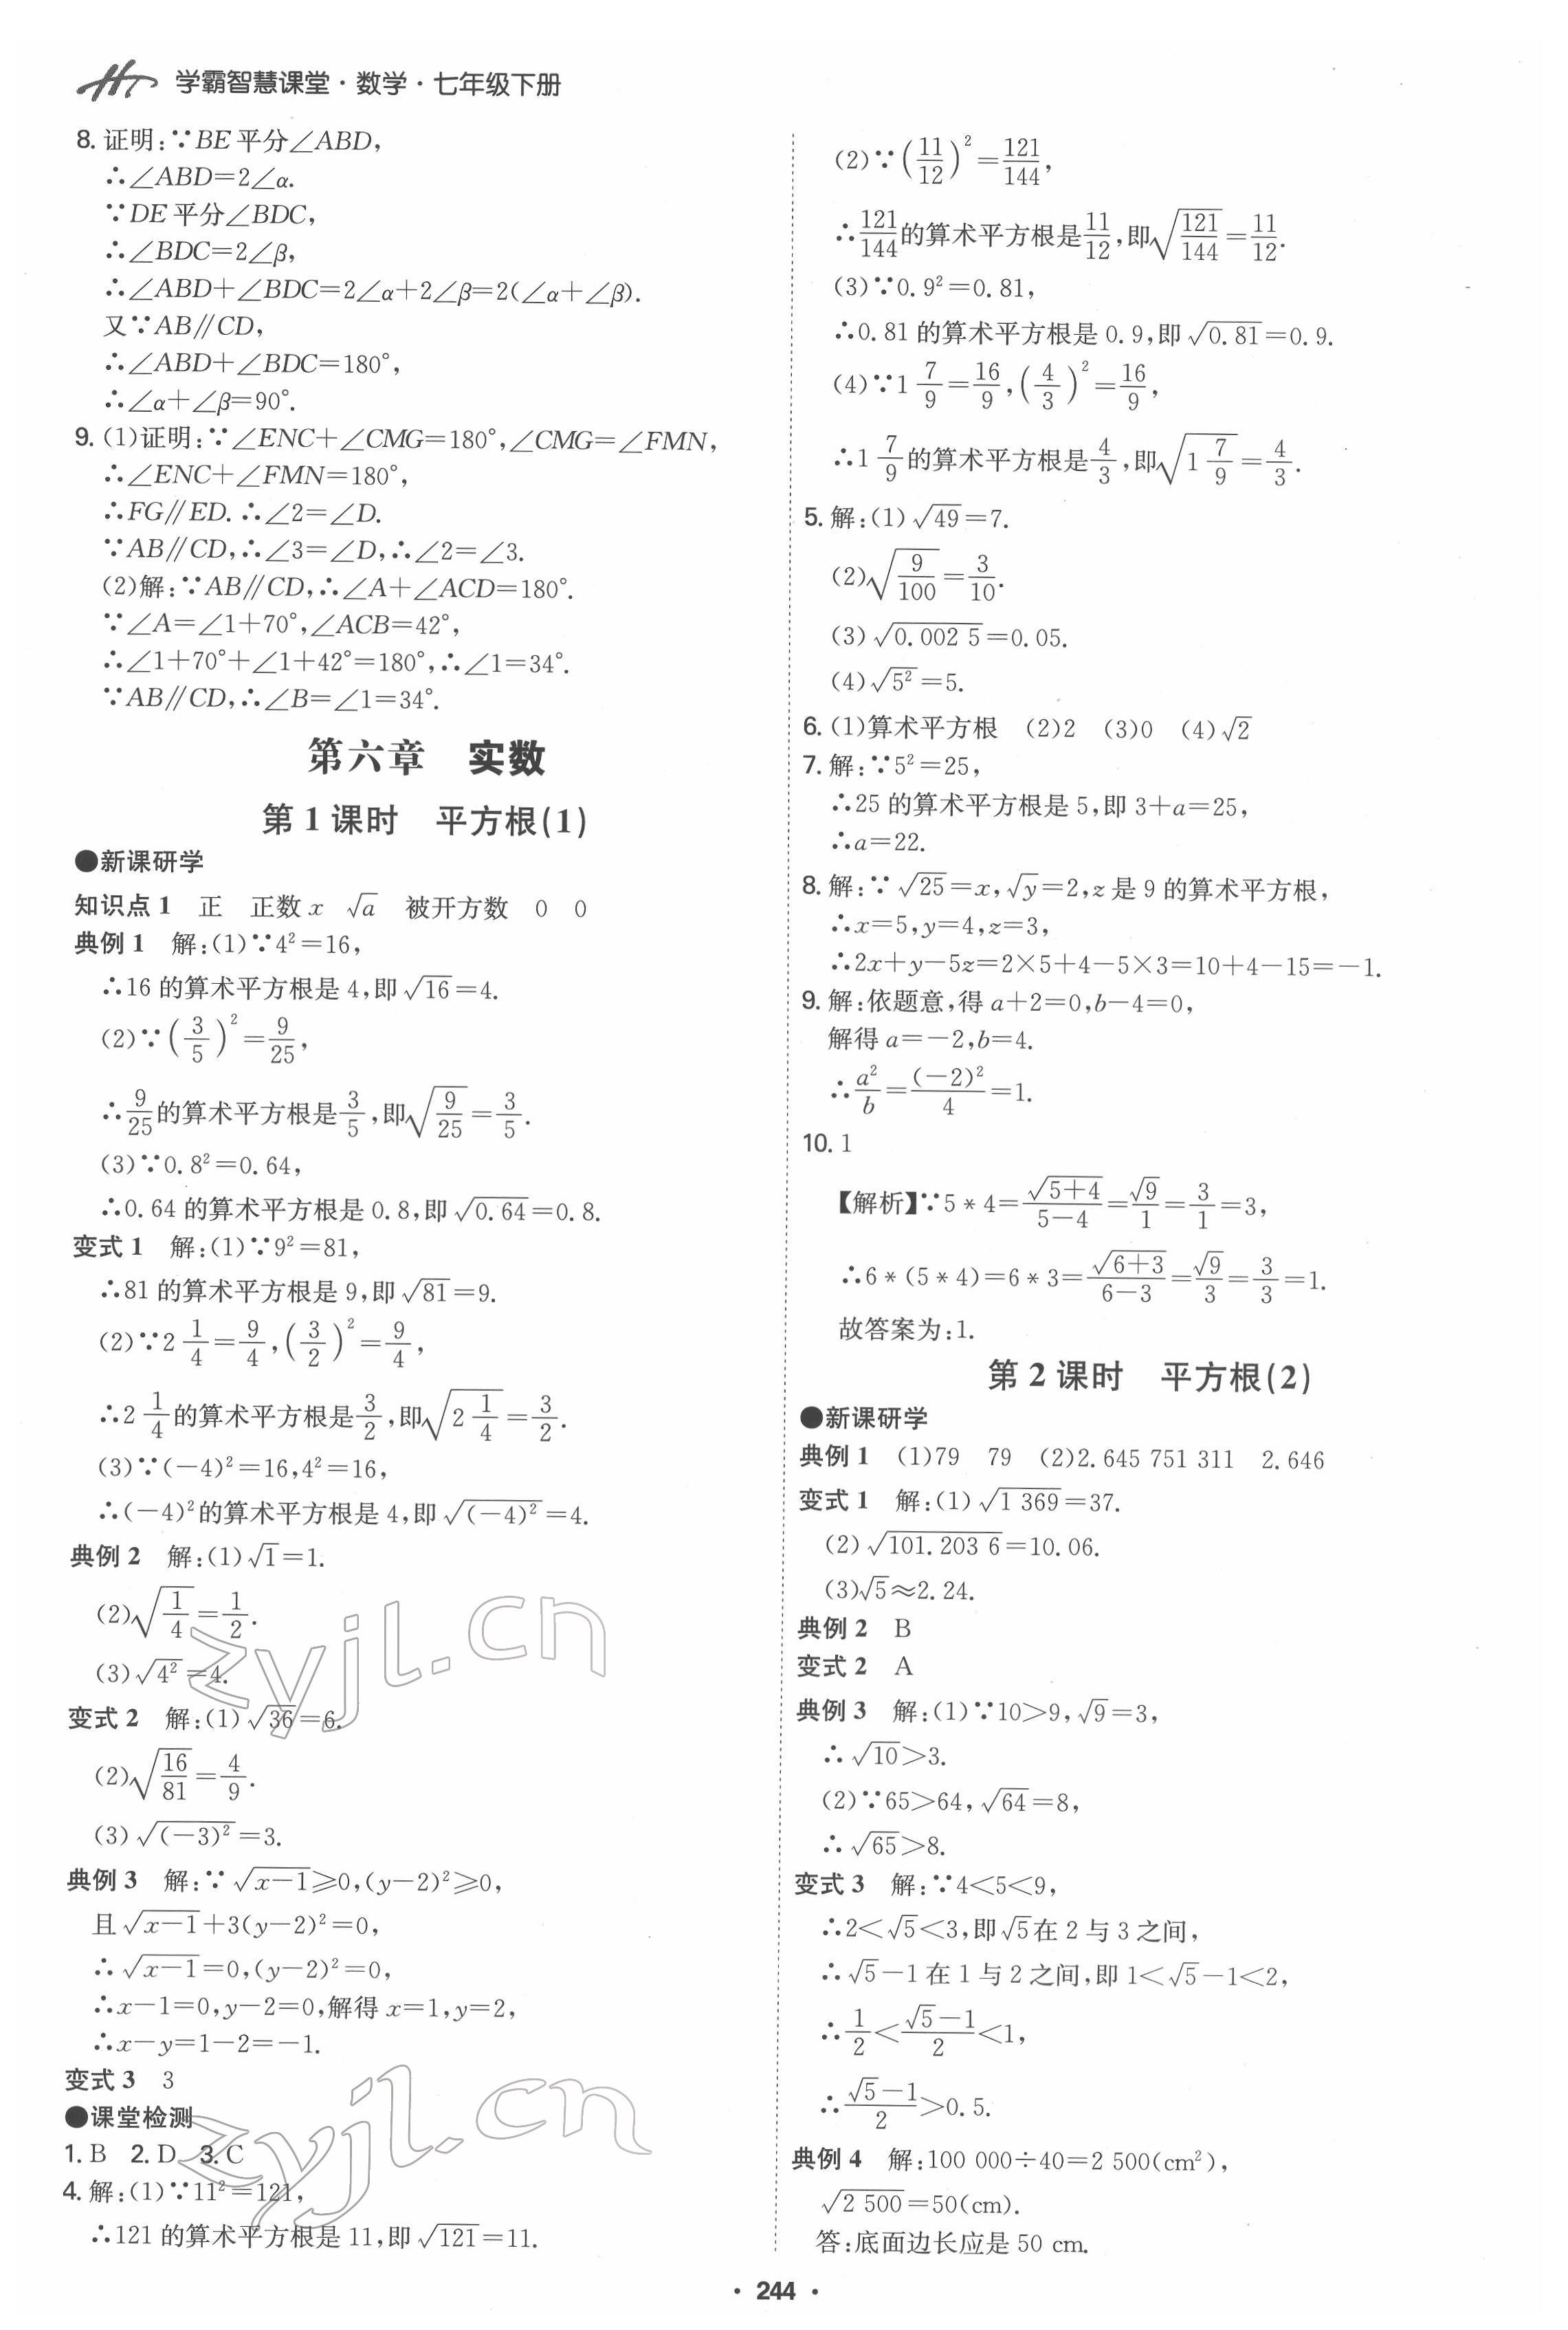 学霸智慧课堂·数学·七年级下册
8. 证明:∵BE平分∠ABD,
∴∠ABD=2∠α.
∵DE平分∠BDC,
∴∠BDC=2∠β,
∴∠ABD+∠BDC=2∠α+2∠β=2(∠α+∠β).
又∵AB∥CD,
∴∠ABD+∠BDC=180°,
∴∠α+∠β=90°.
9. (1)证明:∵∠ENC+∠CMG=180°,∠CMG=∠FMN,
∴∠ENC+∠FMN=180°,
∴FG∥ED.∴∠2=∠D.
∵AB∥CD,∴∠3=∠D,∴∠2=∠3.
(2)解:∵AB∥CD,∴∠A+∠ACD=180°.
∵∠A=∠1+70°,∠ACB=42°,
∴∠1+70°+∠1+42°=180°,∴∠1=34°.
∵AB∥CD,∴∠B=∠1=34°.
第六章 实数
第1课时 平方根(1)
●新课研学
知识点1 正 正数x √a 被开方数 0 0
典例1 解:(1)∵4²=16,
∴16的算术平方根是4,即√16=4.
(2)∵(3/5)²=9/25,
∴9/25的算术平方根是3/5,即√(9/25)=3/5.
(3)∵0.8²=0.64,
∴0.64的算术平方根是0.8,即√0.64=0.8.
变式1 解:(1)∵9²=81,
∴81的算术平方根是9,即√81=9.
(2)∵2 1/4=9/4,(3/2)²=9/4,
∴2 1/4的算术平方根是3/2,即√(2 1/4)=3/2.
(3)∵(-4)²=16,4²=16,
∴(-4)²的算术平方根是4,即√(-4)²=4.
典例2 解:(1)√1=1.
(2)√(1/4)=1/2.
(3)√4²=4.
变式2 解:(1)√36=6.
(2)√(16/81)=4/9.
(3)√(-3)²=3.
典例3 解:∵√(x-1)≥0,(y-2)²≥0,
且√(x-1)+3(y-2)²=0,
∴√(x-1)=0,(y-2)²=0,
∴x-1=0,y-2=0,解得x=1,y=2,
∴x-y=1-2=-1.
变式3 3
●课堂检测
1. B 2. D 3. C
4. 解:(1)∵11²=121,
∴121的算术平方根是11,即√121=11.
(2)∵(11/12)²=121/144,
∴121/144的算术平方根是11/12,即√(121/144)=11/12.
(3)∵0.9²=0.81,
∴0.81的算术平方根是0.9,即√0.81=0.9.
(4)∵1 7/9=16/9,(4/3)²=16/9,
∴1 7/9的算术平方根是4/3,即√(1 7/9)=4/3.
5. 解:(1)√49=7.
(2)√(9/100)=3/10.
(3)√0.002 5=0.05.
(4)√5²=5.
6. (1)算术平方根 (2)2 (3)0 (4)√2
7. 解:∵5²=25,
∴25的算术平方根是5,即3+a=25,
∴a=22.
8. 解:∵√25=x,√y=2,z是9的算术平方根,
∴x=5,y=4,z=3,
∴2x+y-5z=2×5+4-5×3=10+4-15=-1.
9. 解:依题意,得a+2=0,b-4=0,
解得a=-2,b=4.
∴a²/b=(-2)²/4=1.
10. 1
【解析】∵5*4=√(5+4)/(5-4)=√9/1=3/1=3,
∴6*(5*4)=6*3=√(6+3)/(6-3)=√9/3=3/3=1.
故答案为:1.
第2课时 平方根(2)
●新课研学
典例1 (1)79 79 (2)2.645 751 311 2.646
变式1 解:(1)√1 369=37.
(2)√101.203 6=10.06.
(3)√5≈2.24.
典例2 B
变式2 A
典例3 解:(1)∵10>9,√9=3,
∴√10>3.
(2)∵65>64,√64=8,
∴√65>8.
变式3 解:∵4<5<9,
∴2<√5<3,即√5在2与3之间,
∴√5-1在1与2之间,即1<√5-1<2,
∴1/2<(√5-1)/2<1,
∴(√5-1)/2>0.5.
典例4 解:100 000÷40=2 500(cm²),
√2 500=50(cm).
答:底面边长应是50 cm.
·244·
zyjl.cn
zyjl.cn